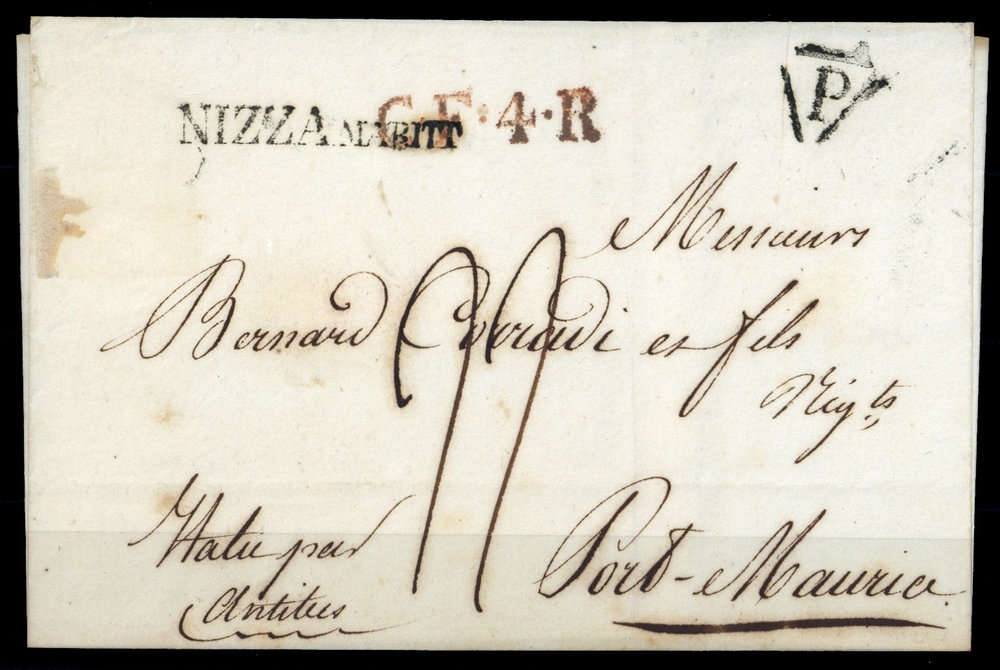 NIZZA MARITT C.F.·4·R
P
Messieurs
Bernard Corradi et fils
Nég.ts
Italie par
Antibes
Port-Maurice